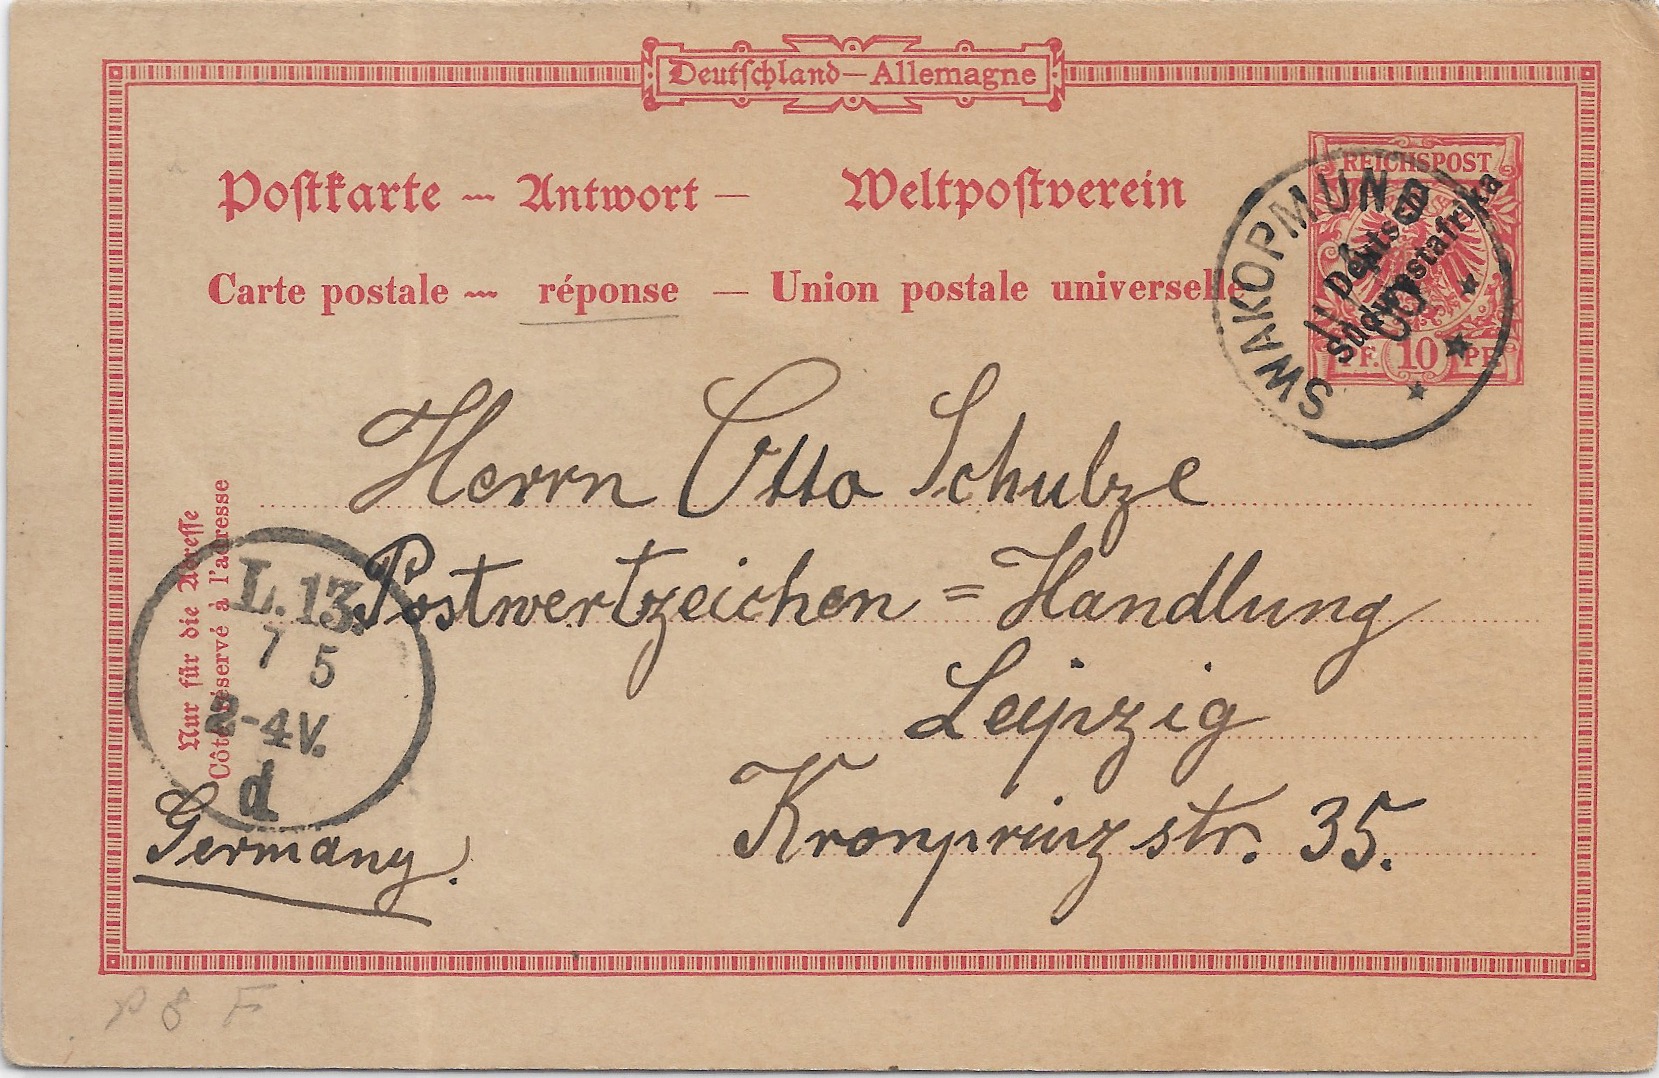 Deutschland—Allemagne
Postkarte — Antwort — Weltpostverein
Carte postale — réponse — Union postale universelle
REICHSPOST
Südwestafrika
PF. 10 PF.
SWAKOPMUND
Herrn Otto Schulze
Postwertzeichen = Handlung
Leipzig
Kronprinz str. 35.
Nur für die Adresse
Côté réservé à l'adresse
L. 13.
7 5
2-4V.
d
Germany.
P 8 F